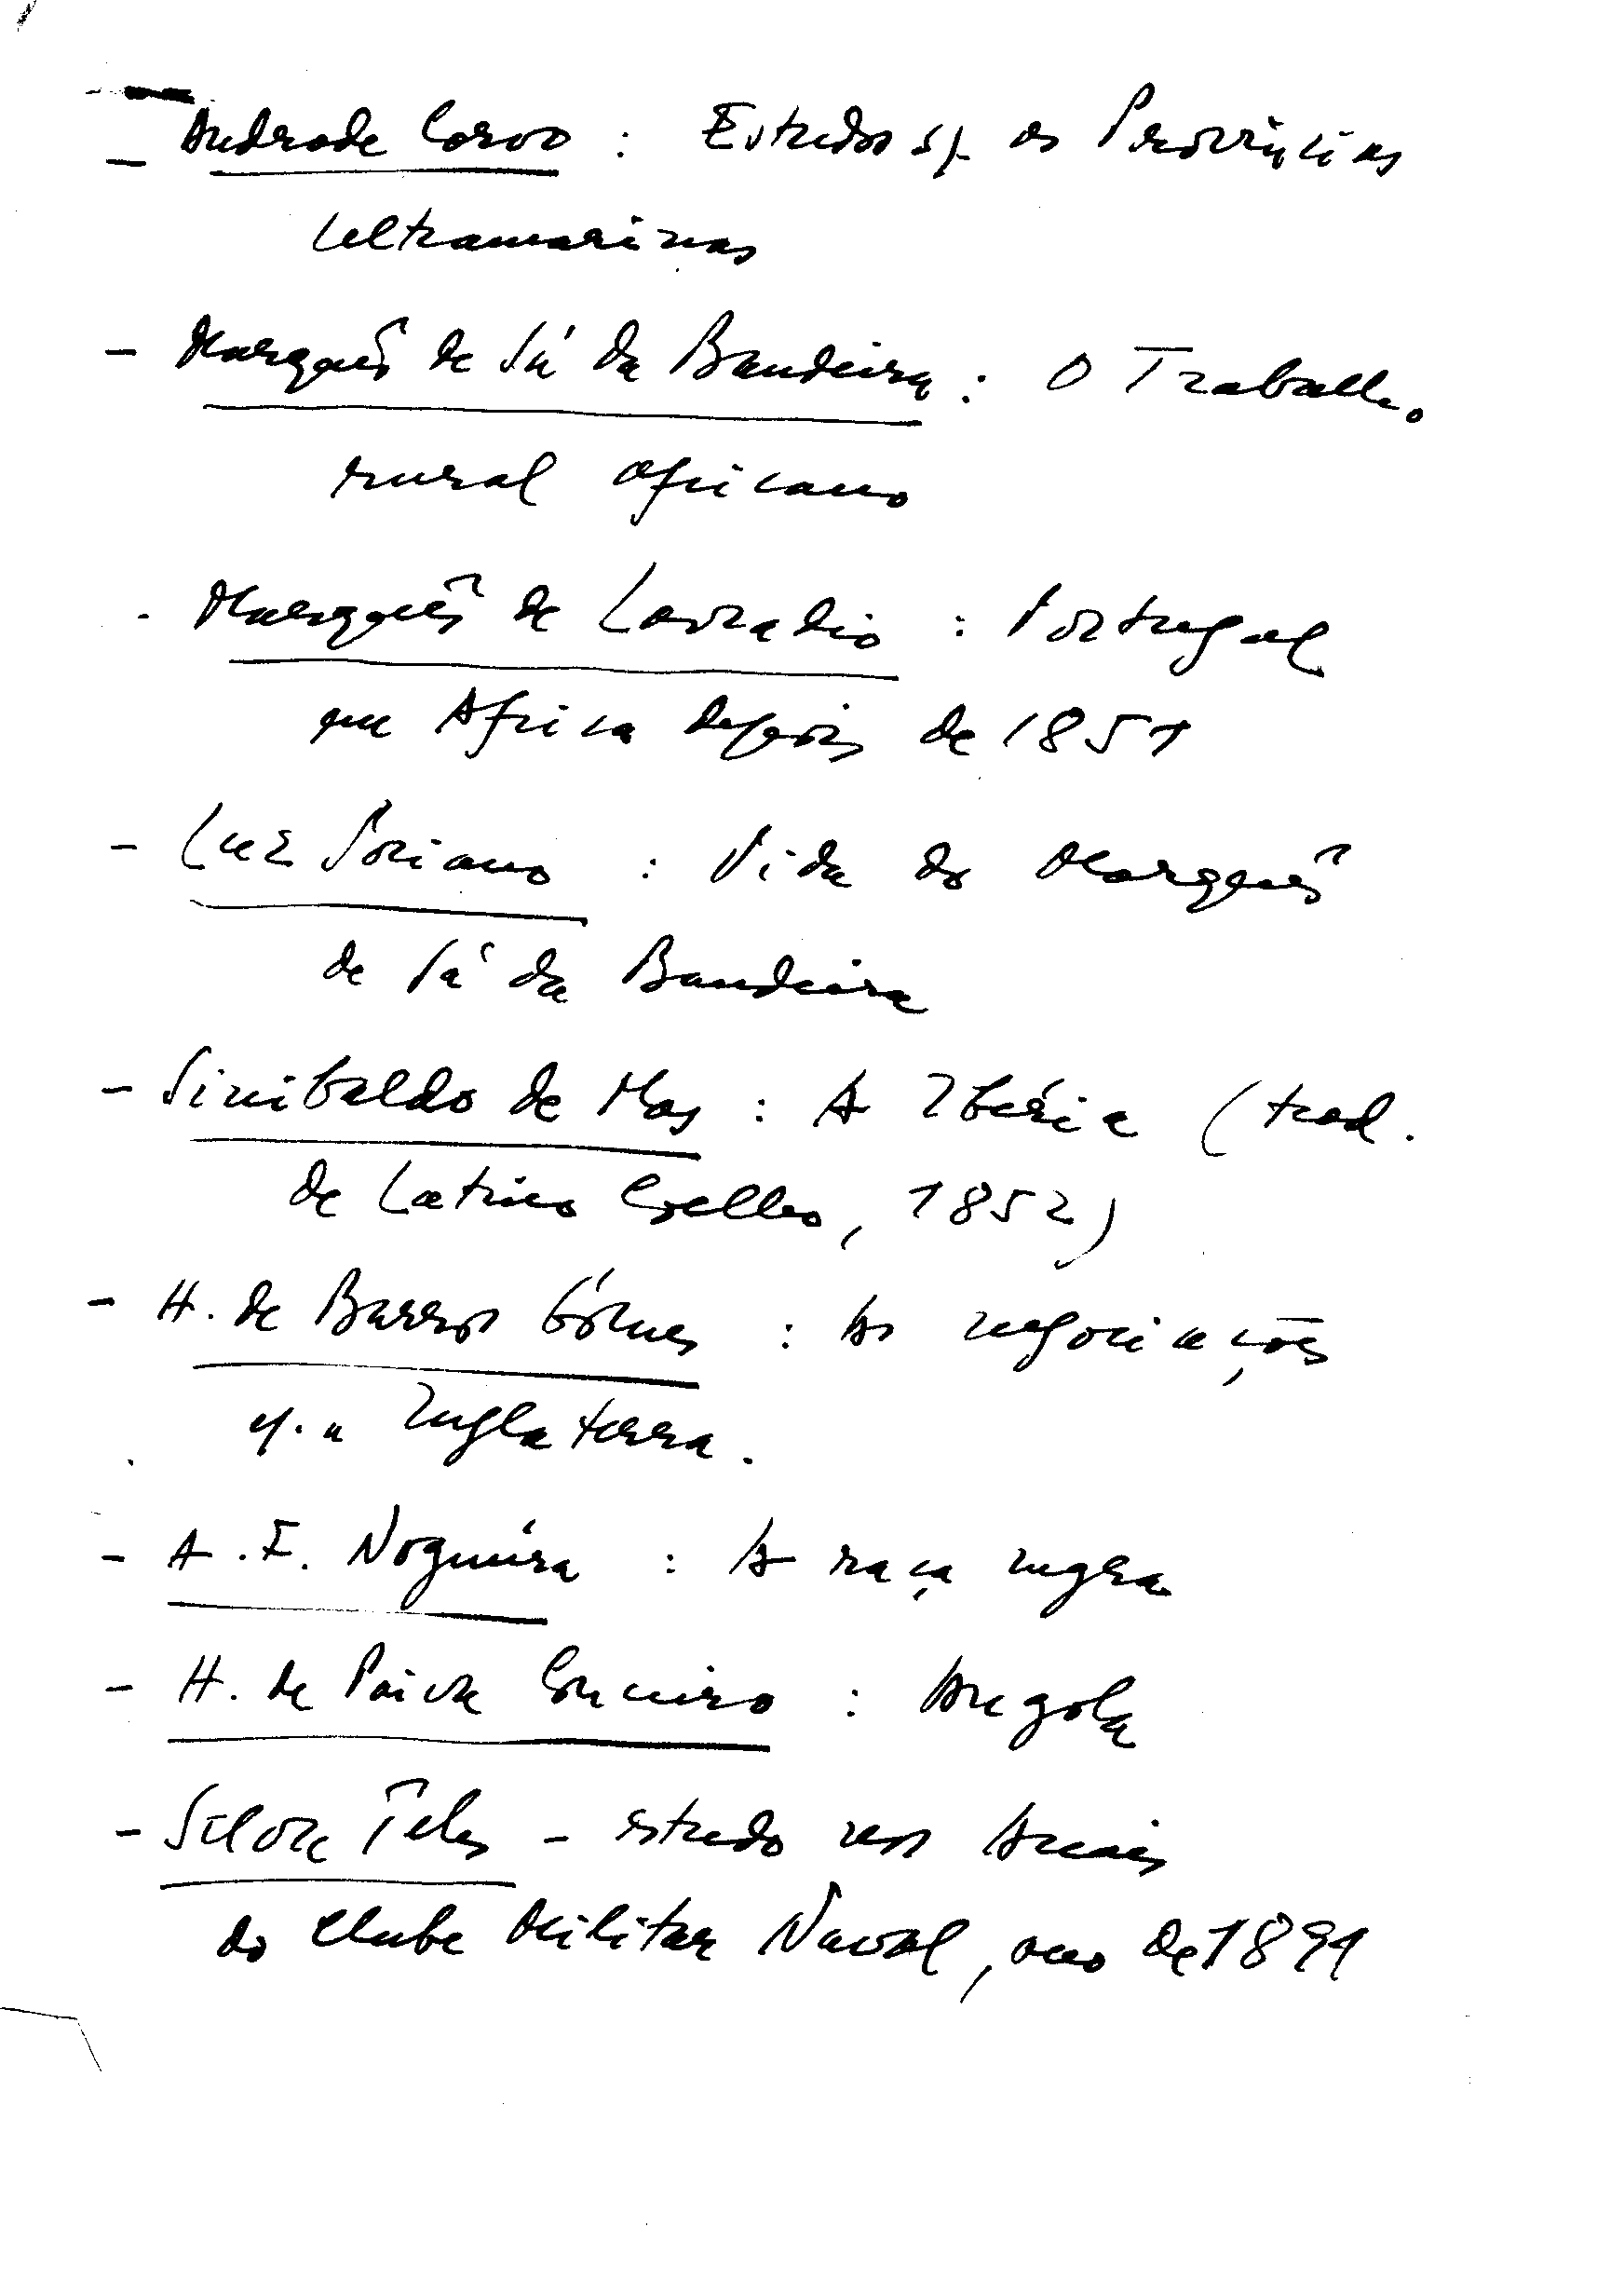 - Andrade Corvo : Estudos s/. as Províncias
Ultramarinas
- Marquês de Sá da Bandeira : O Trabalho
rural africano
- Marquês de Lavradio : Portugal
em Africa depois de 1851
- Luz Soriano : Vida do Marquês
de Sá da Bandeira
- Sinibaldo de Mas : A Ibéria (trad.
de Latino Coelho, 1852)
- H. de Barros Gómes : As negociações
c/. a Inglaterra.
- A. F. Nogueira : A raça negra
- H. de Paiva Couceiro : Angola
- Silva Teles - estudo nos Anais
do Clube Militar Naval, ano de 1891